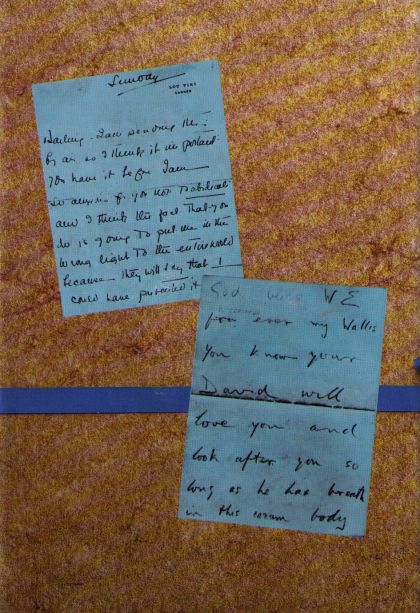 Sunday
LOU VIEI
CANNES
Darling - I am sending this
by air as I think it important
you have it before I am
so anxious for you not to abdicate
and I think the fact that you
do is going to put me in the
wrong light to the entire world
because they will say that I
could have prevented it
God bless WE
for ever my Wallis
You know your
David will
love you and
look after you so
long as he has breath
in this eanum body